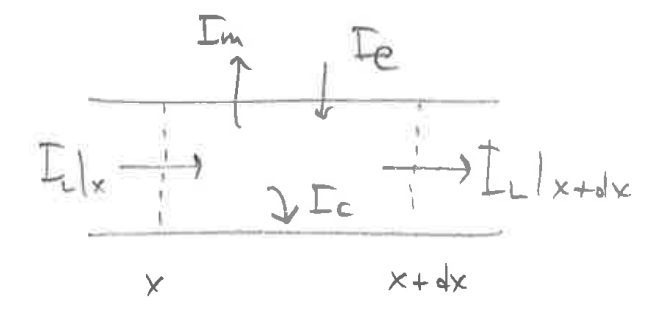 Im
Ie
I_L|x
I_L|x+dx
Ic
x
x+dx